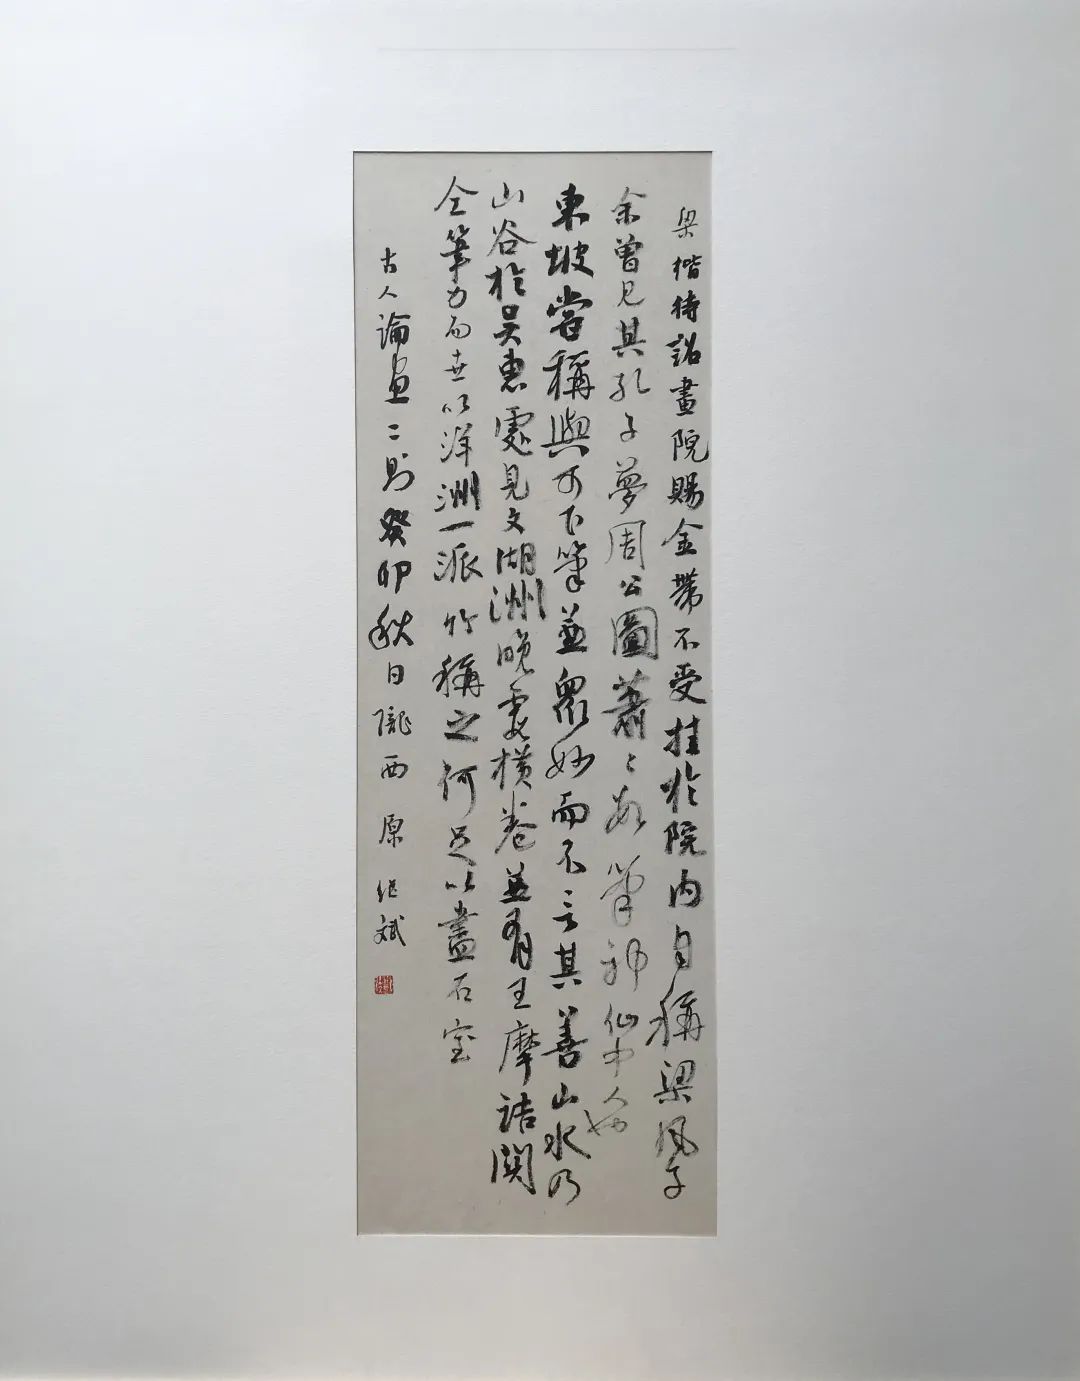 梁楷待詔畫院賜金帶不受挂於院内自稱梁風子
余曾見其孔子夢周公圖蕭〻數筆神仙中人也
東坡嘗稱與可下筆兼眾妙而不言其善山水乃
山谷於吴惠處見文湖洲晚靄橫卷並有王摩詰関
仝筆力而世以洋洲一派竹稱之何足以盡石室
古人論畫二則癸卯秋日隴西原 斌